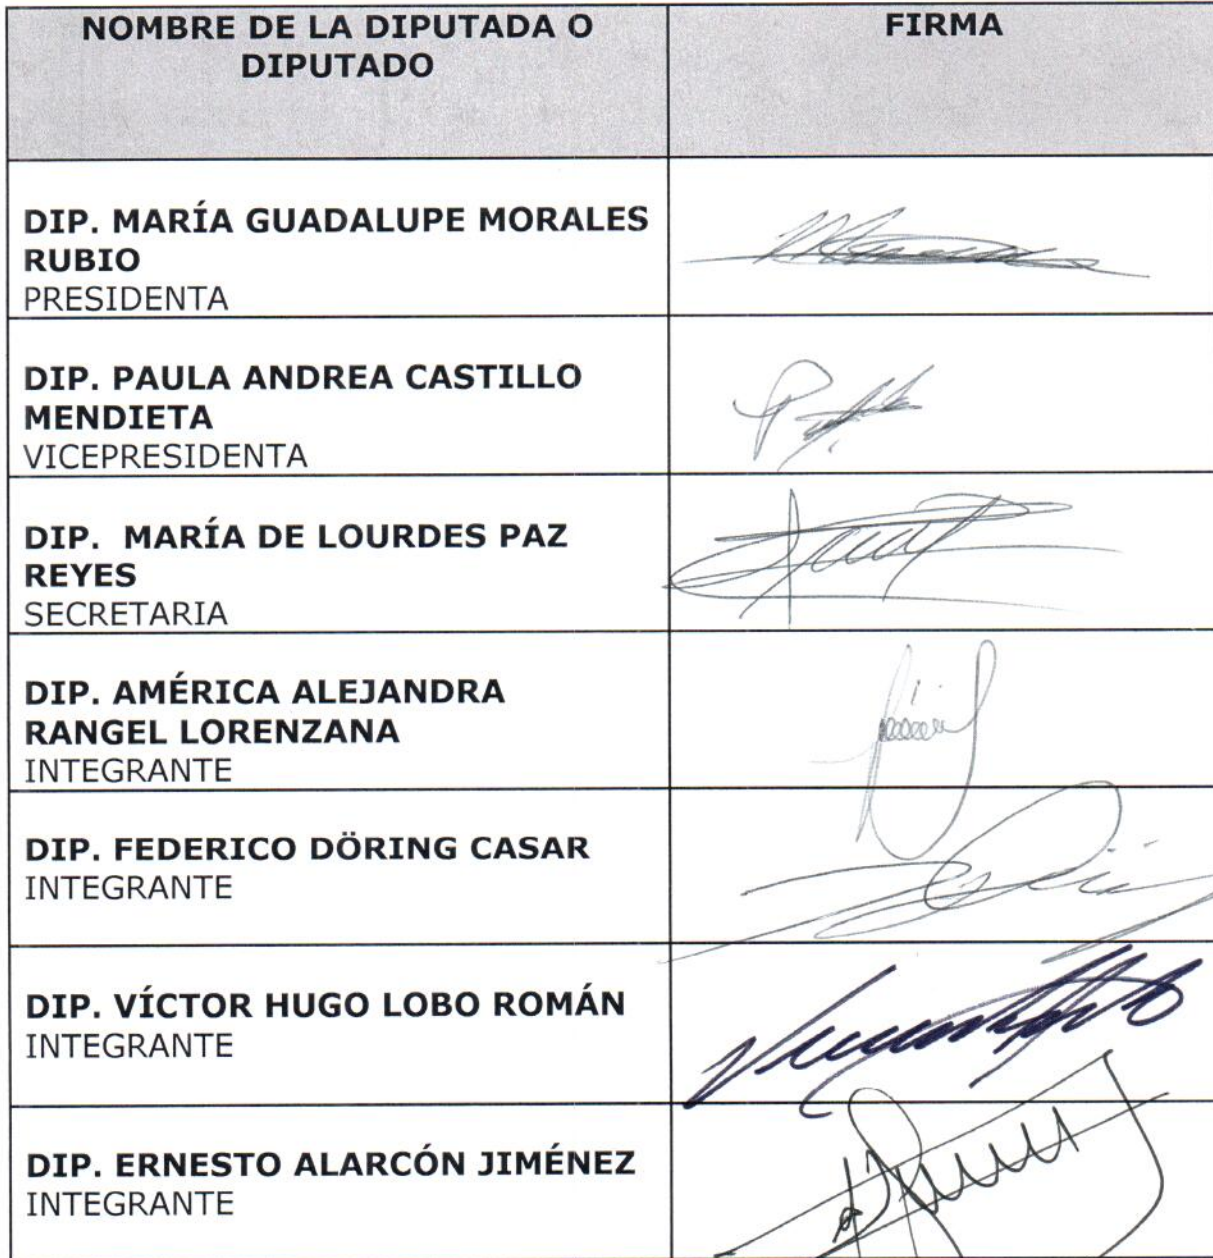 NOMBRE DE LA DIPUTADA O
DIPUTADO
FIRMA
DIP. MARÍA GUADALUPE MORALES
RUBIO
PRESIDENTA
DIP. PAULA ANDREA CASTILLO
MENDIETA
VICEPRESIDENTA
DIP. MARÍA DE LOURDES PAZ
REYES
SECRETARIA
DIP. AMÉRICA ALEJANDRA
RANGEL LORENZANA
INTEGRANTE
DIP. FEDERICO DÖRING CASAR
INTEGRANTE
DIP. VÍCTOR HUGO LOBO ROMÁN
INTEGRANTE
DIP. ERNESTO ALARCÓN JIMÉNEZ
INTEGRANTE